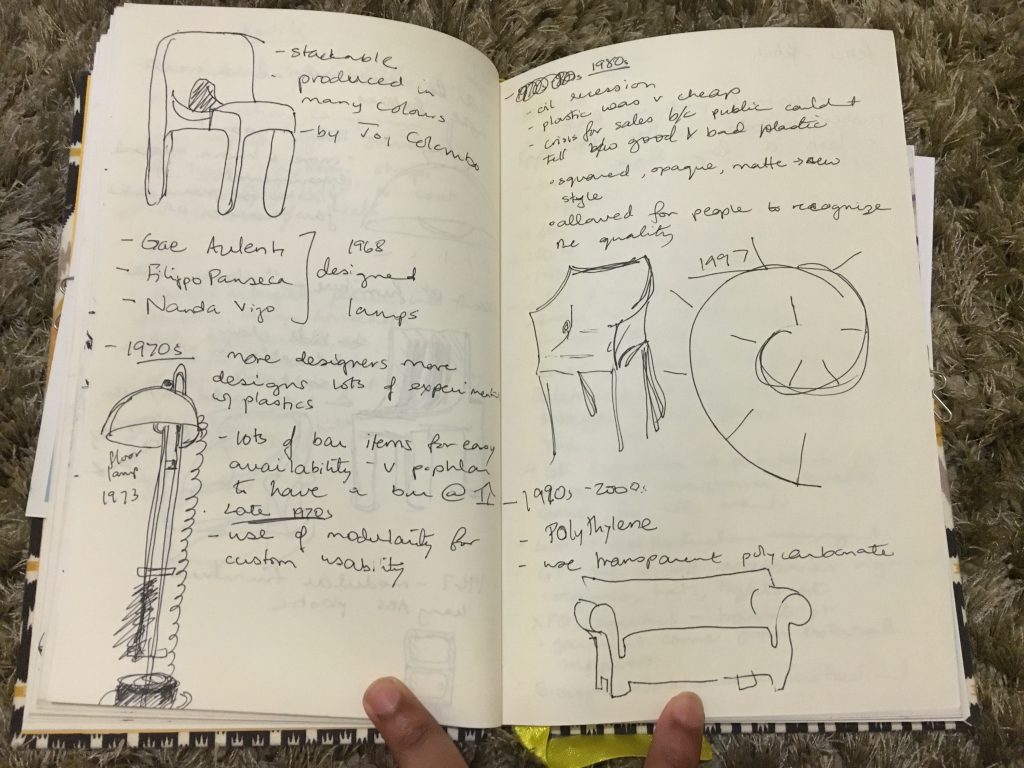 - stackable
- produced in
many colours
- by Joy Colombo
- Gae Aulenti
- Filippo Panseca
- Nanda Vigo
1968
designed
lamps
- 1970s
more designers more
designs lots of experiments
w/ plastics
floor
lamp
1973
- lots of bar items for easy
availability - v
to have a bar @
Late 1970s
- use of modularity for
custom usability
- 1980s
- oil recession
- plastic was v cheap
- crisis for sales b/c public couldn't
tell b/w good & bad plastic
• squared, opaque, matte → new
style
• allowed for people to recognize
the quality
1997
- 1990s - 2000s
- Polythylene
- use transparent polycarbonate